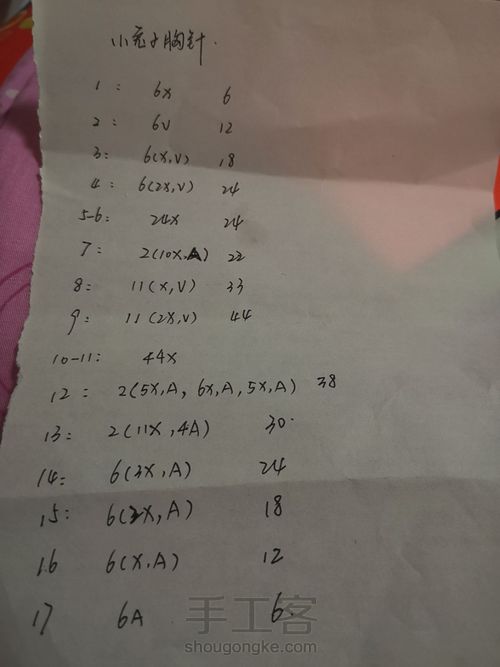 小兔子胸针.
1: 6X 6
2: 6V 12
3: 6(X,V) 18
4: 6(2X,V) 24
5-6: 24X 24
7: 2(10X,A) 22
8: 11(X,V) 33
9: 11(2X,V) 44
10-11: 44X
12: 2(5X,A, 6X,A, 5X,A) 38
13: 2(11X,4A) 30.
14: 6(3X,A) 24
15: 6(2X,A) 18
16 6(X,A) 12
17 6A 6.
手工客
shougongke.com